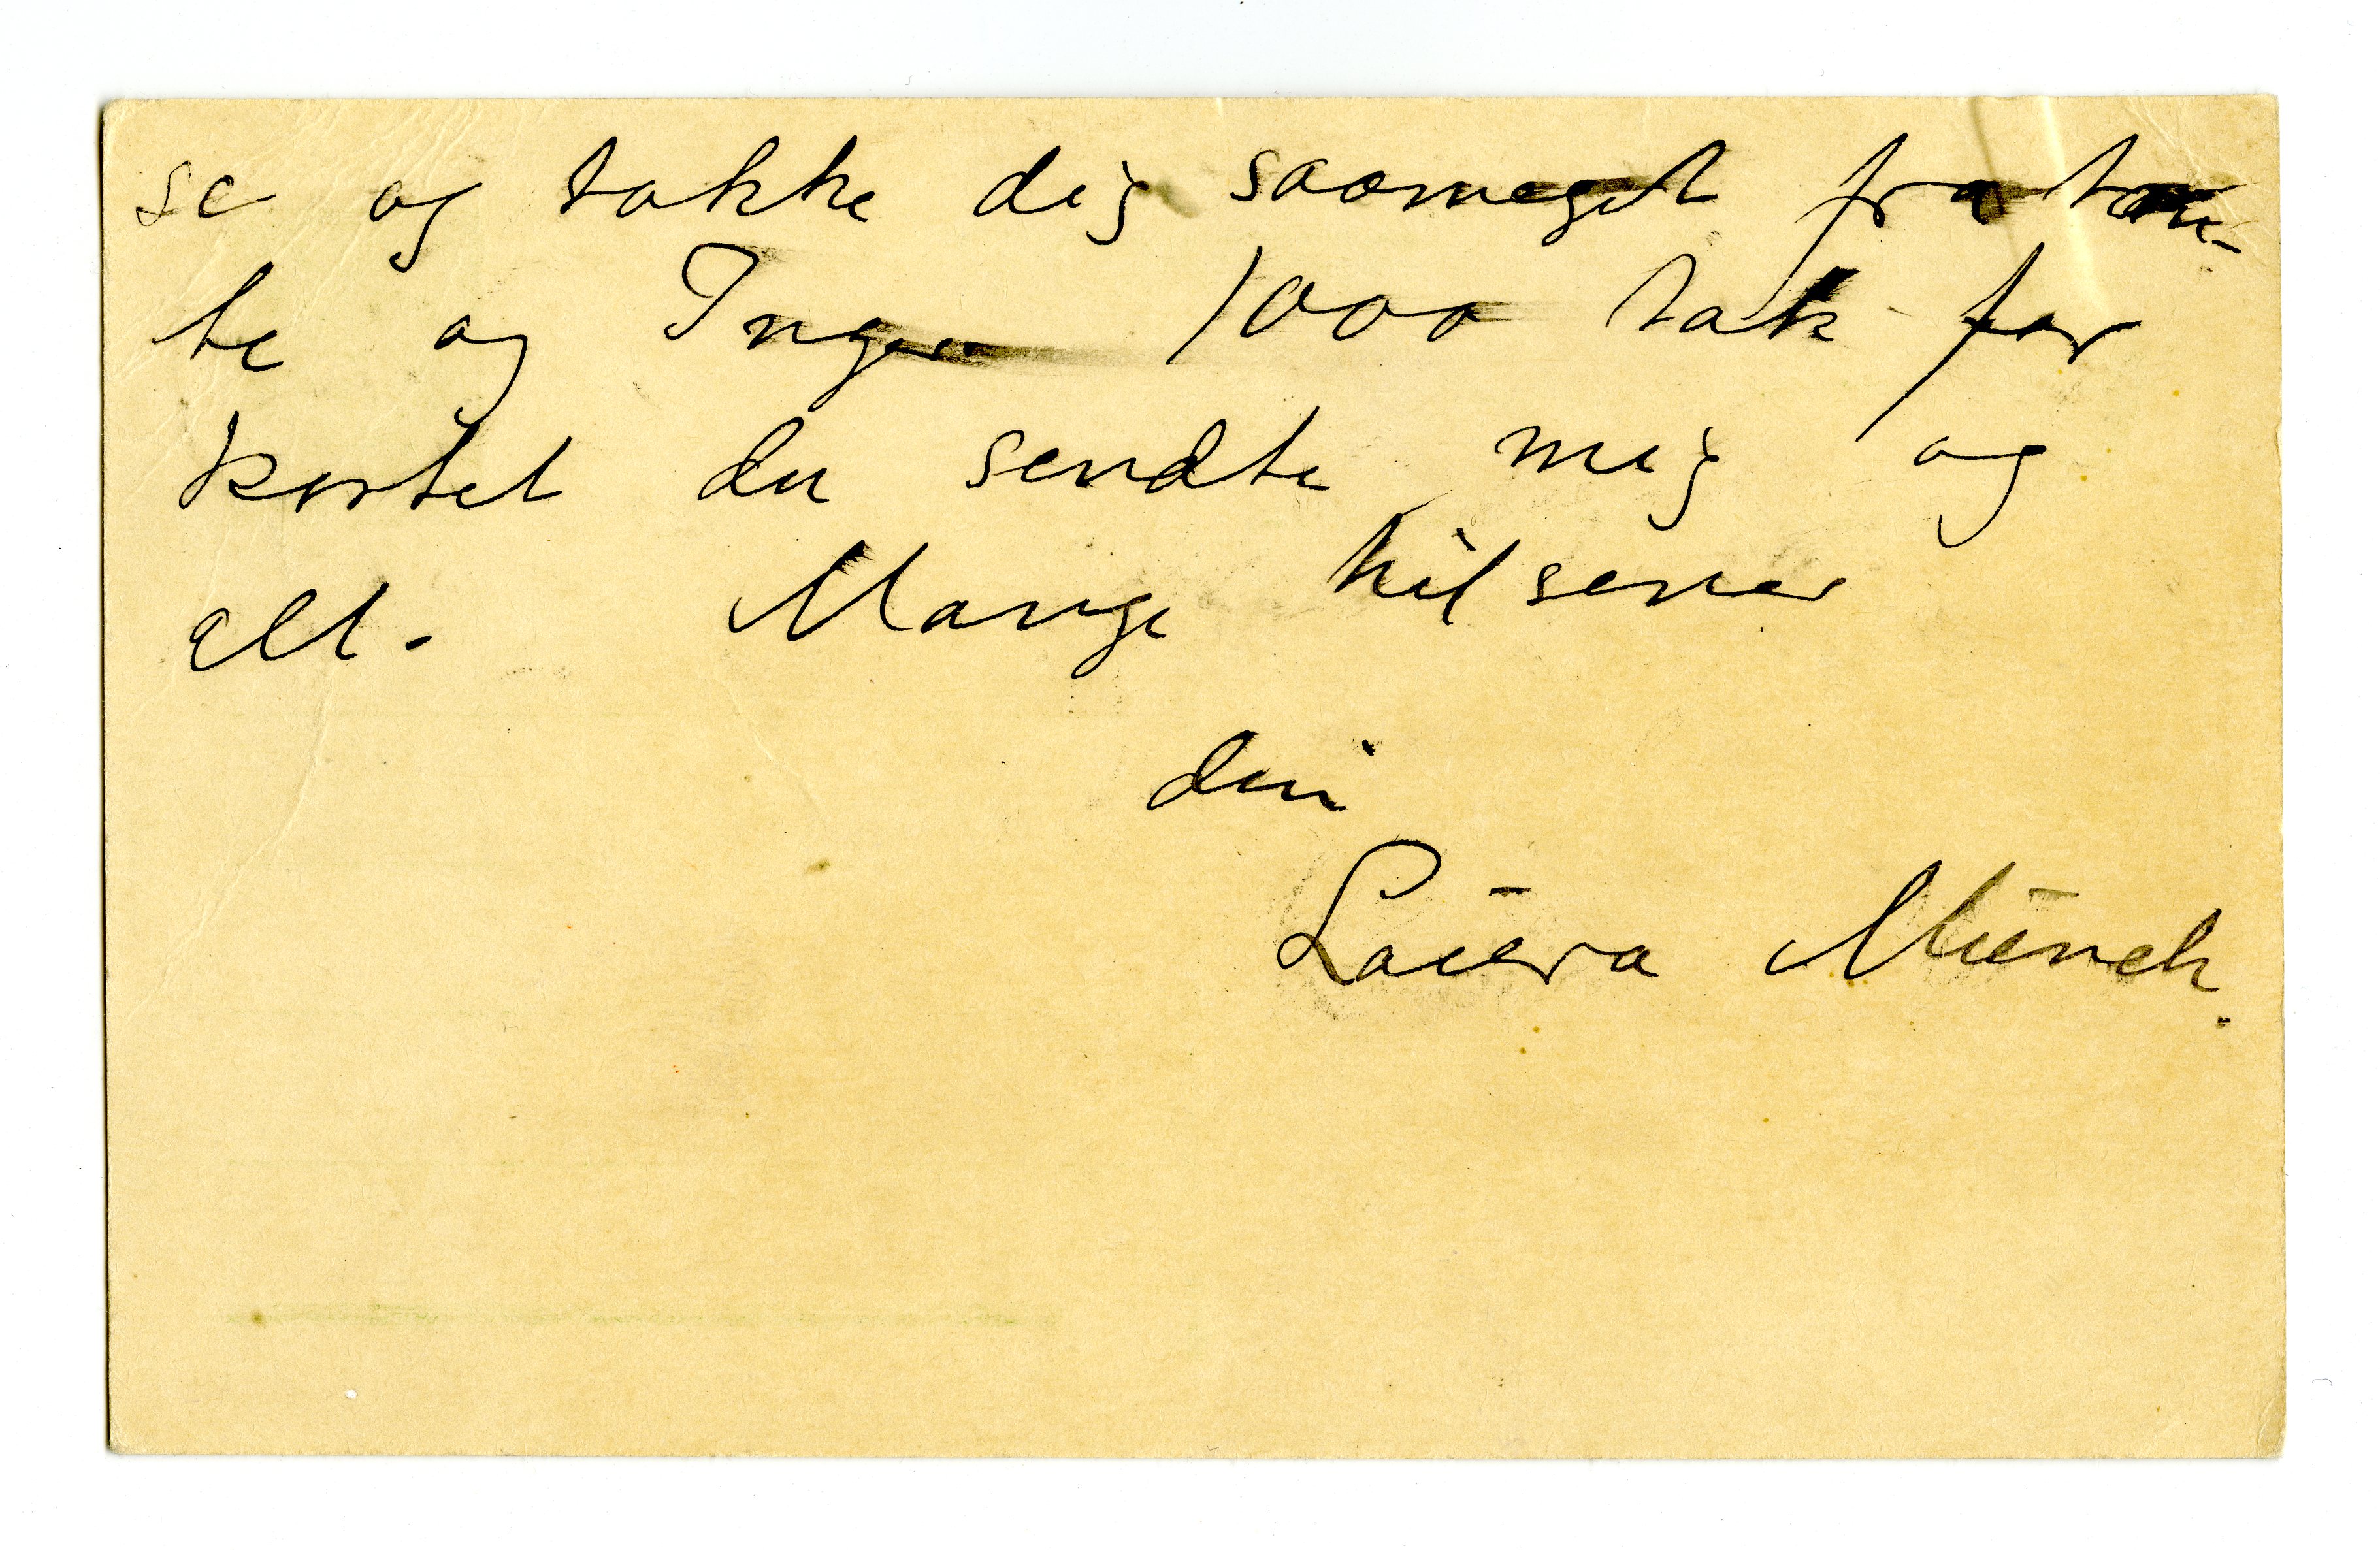 se og takke dig saameget fra tan-
te og Inger 1000 tak for
kortet du sendte mig og
alt. Mange hilsener
din
Laura Munch.